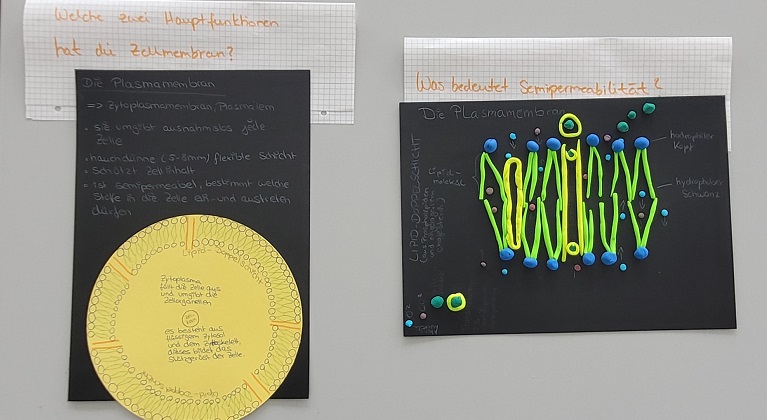 Welche zwei Hauptfunktionen
hat die Zellmembran?
Die Plasmamembran
=> Zytoplasmamembran, Plasmalem
• sie umgibt ausnahmslos jede
Zelle
• hauchdünne (5-8nm) flexible Schicht
• Schützt Zellinhalt
• ist semipermeabel, bestimmt welche
Stoffe in die Zelle ein- und austreten
dürfen
Lipid-Doppelschicht
Zytoplasma
füllt die Zelle aus
und umgibt die
Zellorganellen
es besteht aus
flüssigem Zytosol
und dem Zytoskelett,
dieses bildet das
Stützgerüst der Zelle.
Was bedeutet Semipermeabilität?
Die Plasmamembran
hydrophiler
Kopf
Lipid-
molekül
hydrophober
Schwanz
LIPID-DOPPELSCHICHT